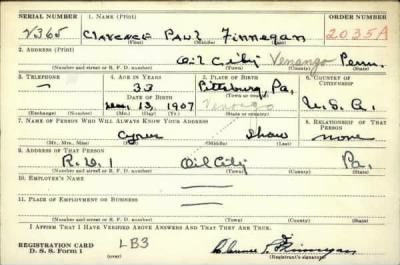 SERIAL NUMBER 1. NAME (Print) ORDER NUMBER
V365 Clarence Paul Finnegan 2035A
(First) (Middle) (Last)
2. ADDRESS (Print)
Oil City Venango Penn.
(Number and street or R. F. D. number) (Town) (County) (State)
3. TELEPHONE 4. AGE IN YEARS 5. PLACE OF BIRTH 6. COUNTRY OF CITIZENSHIP
— 33 Pittsburg, Pa.
DATE OF BIRTH (Town or county)
13, 1907 Venango U.S.A.
(Exchange) (Number) (Mo.) (Day) (Yr.) (State or country)
7. NAME OF PERSON WHO WILL ALWAYS KNOW YOUR ADDRESS 8. RELATIONSHIP OF THAT PERSON
Cyrus Shaw none
(Mr., Mrs., Miss) (First) (Middle) (Last)
9. ADDRESS OF THAT PERSON
R.D. 1 Oil City Pa.
(Number and street or R. F. D. number) (Town) (County) (State)
10. EMPLOYER'S NAME
11. PLACE OF EMPLOYMENT OR BUSINESS
(Number and street or R. F. D. number) (Town) (County) (State)
I AFFIRM THAT I HAVE VERIFIED ABOVE ANSWERS AND THAT THEY ARE TRUE.
REGISTRATION CARD LB3
D. S. S. Form 1 Clarence P. Finnegan
(Registrant's signature)